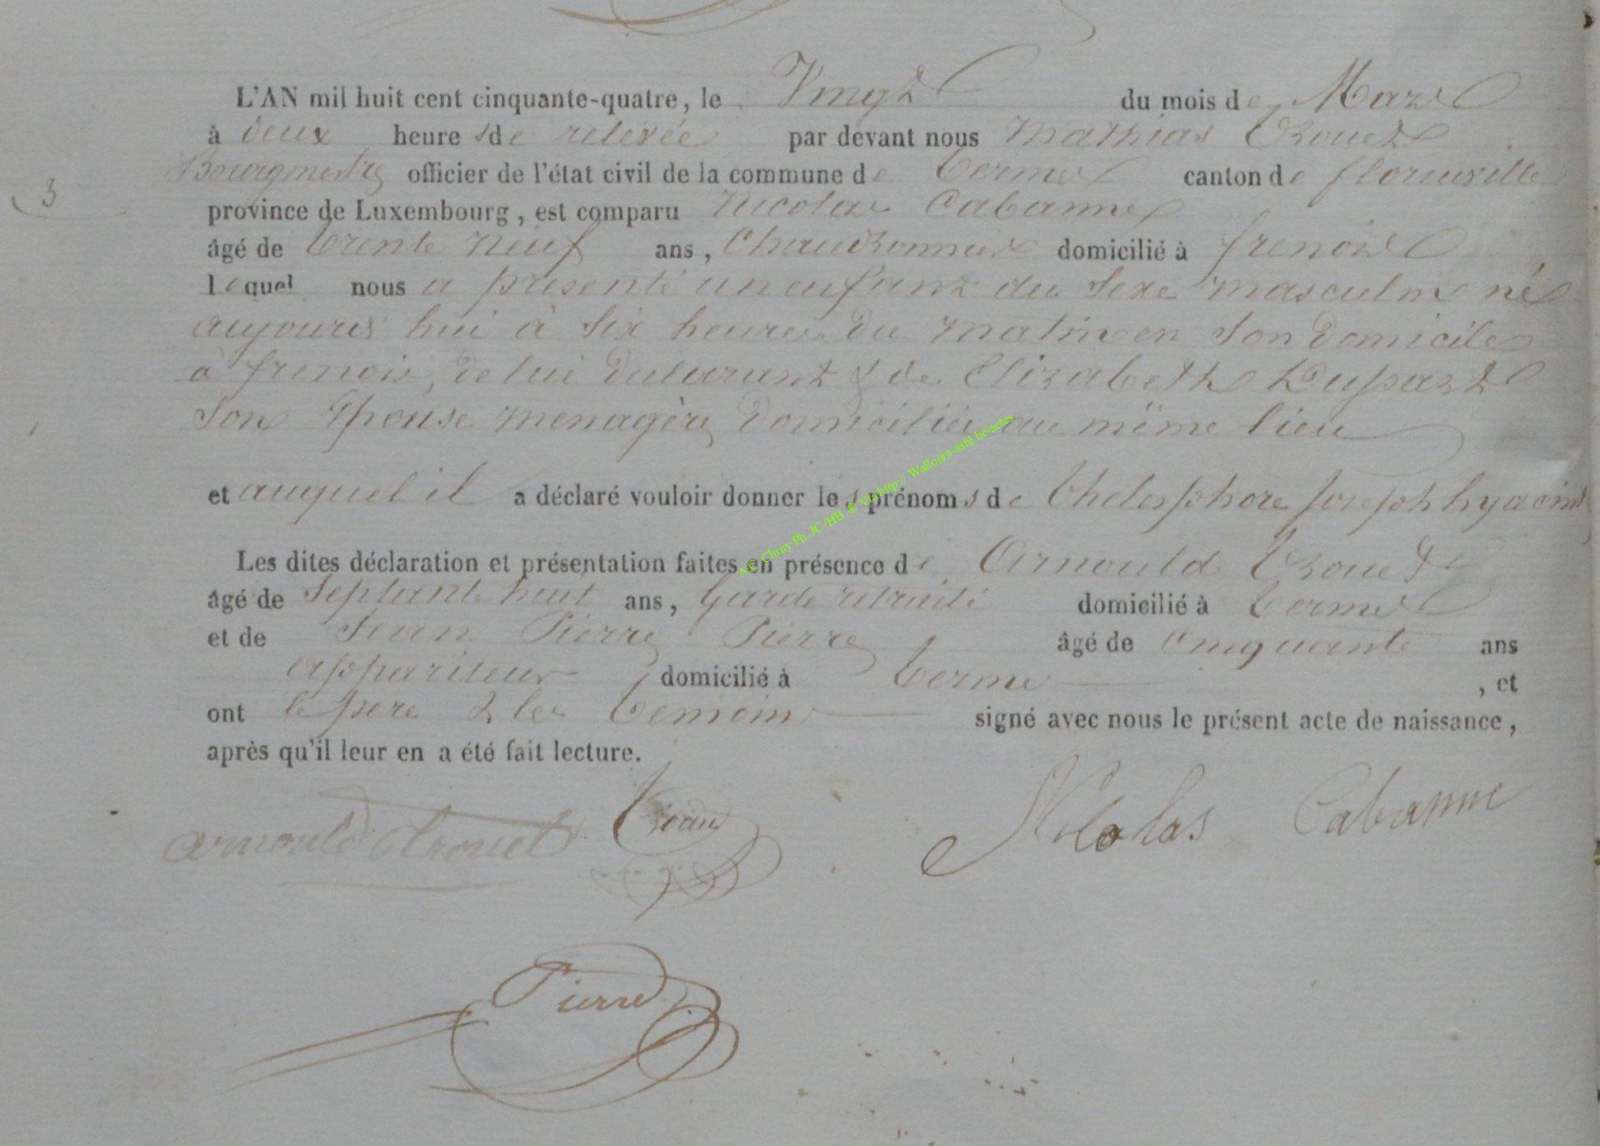 L'AN mil huit cent cinquante-quatre, le Vingt du mois de Mars
à deux heures de relevée par devant nous Mathias Trouet
3
Bourgmestre officier de l'état civil de la commune de Termes canton de florenville
province de Luxembourg, est comparu Nicolas Cabanne
âgé de trente neuf ans, Chaudronnier domicilié à frenois
lequel nous a présenté un enfant du sexe masculin né
aujourd'hui à six heures du matin en son domicile
à frenois, de lui déclarant & de Elisabeth Dupont
son épouse menagère domiciliée au même lieu
et auquel il a déclaré vouloir donner les prénoms de Thelesphore joseph hyacint
Les dites déclaration et présentation faites en présence de Arnould Trouet
âgé de septante huit ans, garde retraité domicilié à Termes
et de Jean Pierre Pierre âgé de cinquante ans
appariteur domicilié à Terme, et
ont le père & les temoins signé avec nous le présent acte de naissance,
après qu'il leur en a été fait lecture.
arnould trouet Trouet Nicolas Cabanne
Pierre